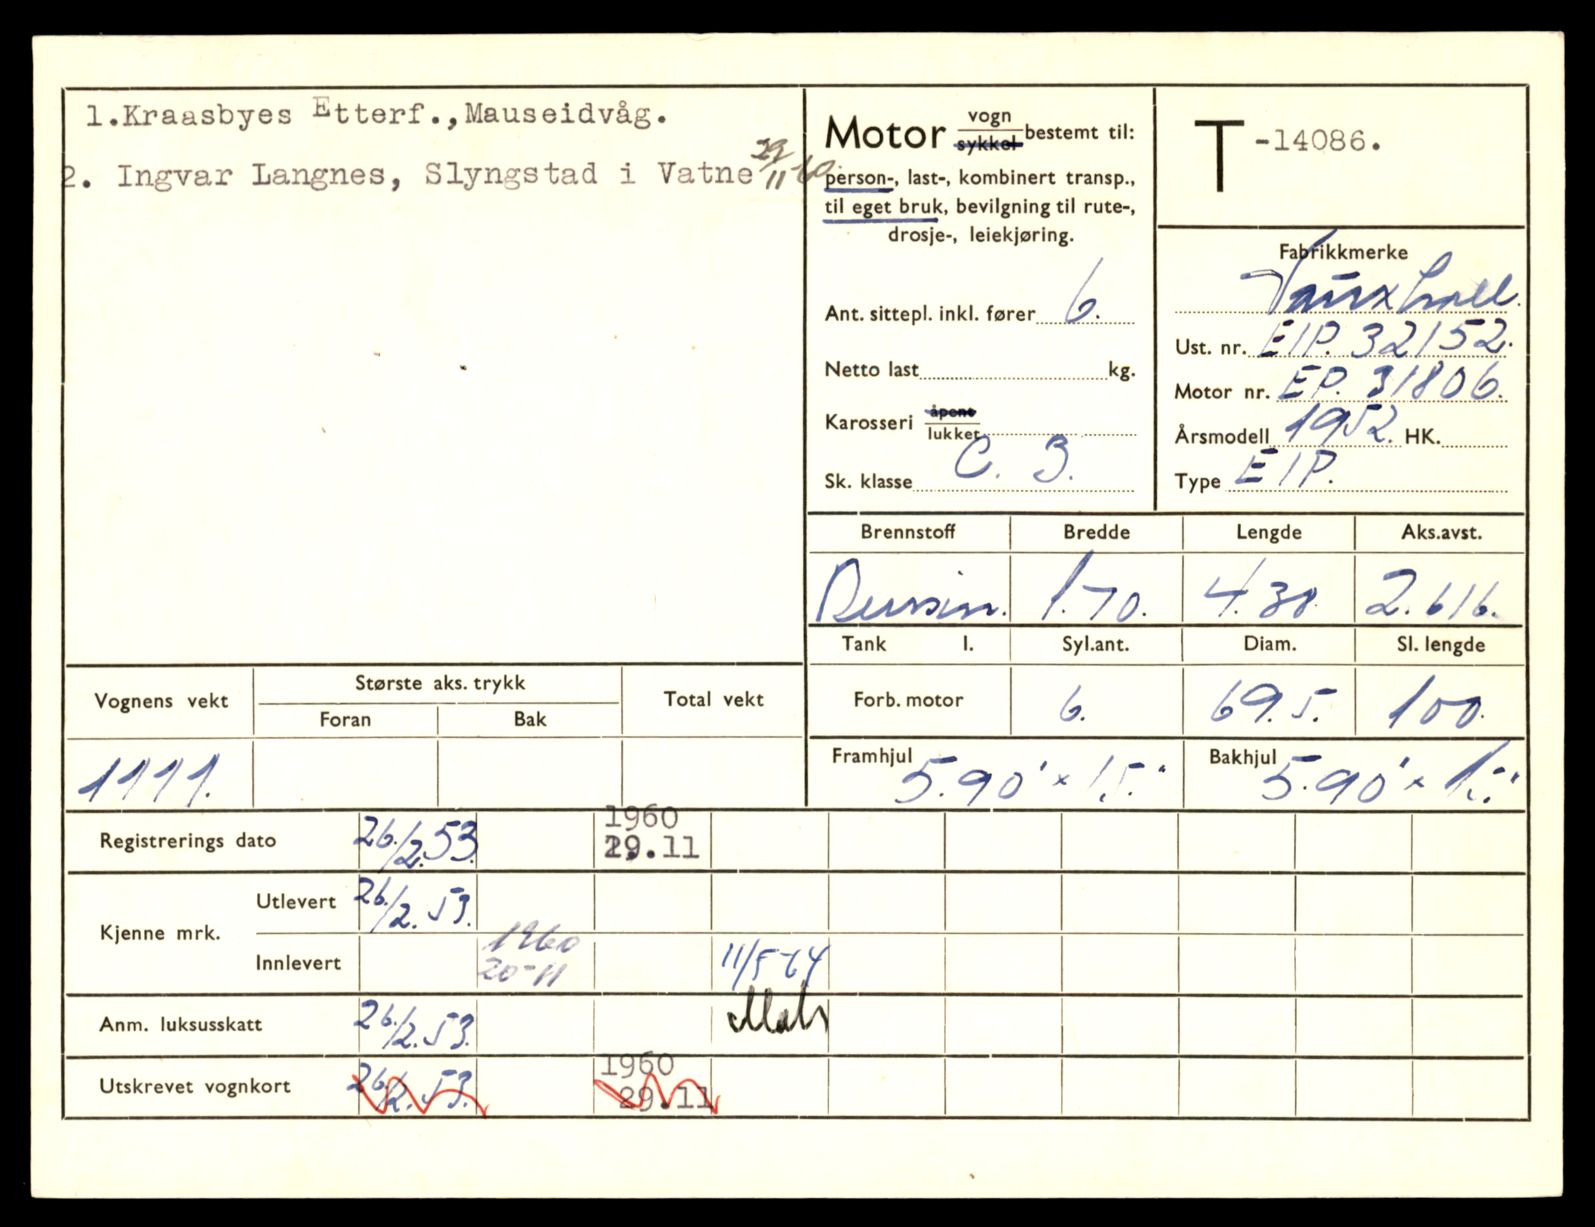 1.Kraasbyes Etterf.,Mauseidvåg.
2. Ingvar Langnes, Slyngstad i Vatne 29/11-60
Motor vogn sykkel bestemt til:
person-, last-, kombinert transp.,
til eget bruk, bevilgning til rute-,
drosje-, leiekjøring.
Ant. sittepl. inkl. fører 6.
Netto last kg.
Karosseri åpent lukket
Sk. klasse C. 3.
T -14086.
Fabrikkmerke
Vauxhall.
Ust. nr. EIP. 32152.
Motor nr. EP. 31806.
Årsmodell 1952. HK.
Type EIP.
Brennstoff Bredde Lengde Aks.avst.
Bensin. 1.70. 4.38. 2.616.
Tank l. Syl.ant. Diam. Sl. lengde
Forb. motor 6. 69.5. 100.
Framhjul 5.90" x 15." Bakhjul 5.90" x 15."
Vognens vekt Største aks. trykk Total vekt
Foran Bak
1111.
Registrerings dato 26/2.53. 1960 29.11
Kjenne mrk. Utlevert 26/2.53.
Innlevert 1960 20-11 11/5-64
Anm. luksusskatt 26/2.53.
Utskrevet vognkort 26/2.53. 1960 29.11